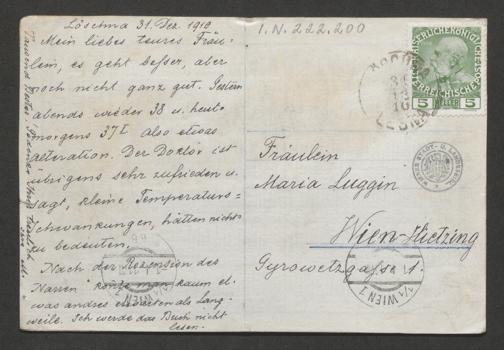 Löschna 31. Dez. 1910
Mein liebes teures Fräu-
lein, es geht besser, aber
noch nicht ganz gut. Gestern
abends wieder 38 u. heute
morgens 37 also etwas
alteration. Der Doktor ist
übrigens sehr zufrieden u.
sagt, kleine Temperaturs-
schwankungen, hätten nichts
zu bedeuten.
Nach der Rezension des
Narren konnte man kaum et-
was andres erwarten als Lang-
weile. Ich werde das Buch nicht
lesen.
Tausend
I.N. 222.200
5 HELLER 5
Fräulein
Maria Luggin
Wien-Hietzing
Gyrowetzgasse 1.
1/1 WIEN 1